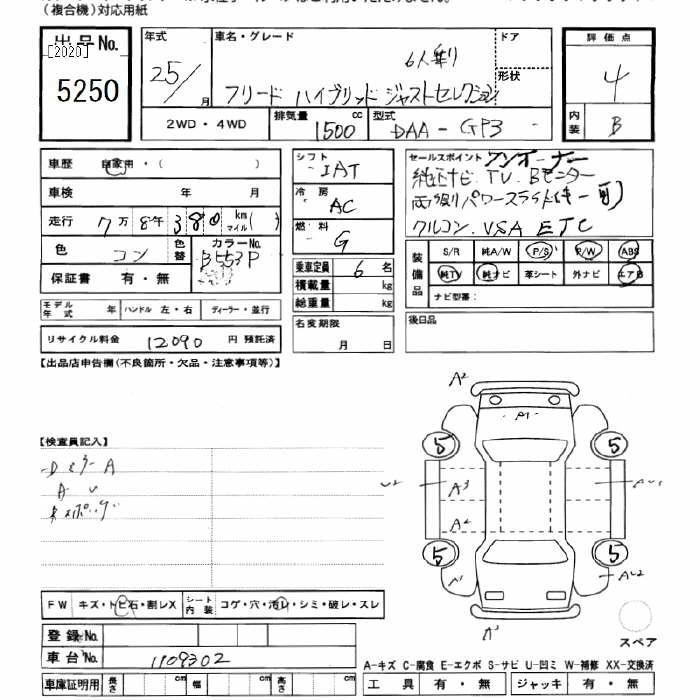 (複合機)対応用紙
出品No.
[2020]
5250
年式
25/
月
車名・グレード
6人乗り
フリード ハイブリッド ジャストセレクション
ドア
形状
評価点
4
内装
B
2WD・4WD
排気量
1500
cc
型式
DAA-GP3
車歴
自家用・( )
車検
年 月
走行
7万8千380
km
マイル( )
色
コン
色替
カラーNo.
B553P
保証書
有・無
シフト
IAT
冷房
AC
燃料
G
乗車定員
6名
積載量
kg
総重量
kg
セールスポイント ワンオーナー
純正ナビ.TV.Bモニター
両側パワースライド(キー可)
クルコン.VSA ETC
装備品
S/R 純A/W P/S P/W ABS
純TV 純ナビ 革シート 外ナビ エアB
ナビ型番:
モデル年式
年
ハンドル 左・右
ディーラー・並行
リサイクル料金
12090
円 預託済
名変期限
月 日
後日品
【出品店申告欄(不良箇所・欠品・注意事項等)】
【検査員記入】
Dミラー A
A U
A2
A1
5
5
U2
A3
A2
5
5
A1
AU2
FW
キズ・トビ石・割レX
シート内装
コゲ・穴・汚レ・シミ・破レ・スレ
登録No.
車台No.
1109302
スペア
車庫証明用
長さ
cm
幅
cm
高さ
cm
A-キズ C-腐食 E-エクボ S-サビ U-凹ミ W-補修 XX-交換済
工具
有・無
ジャッキ
有・無